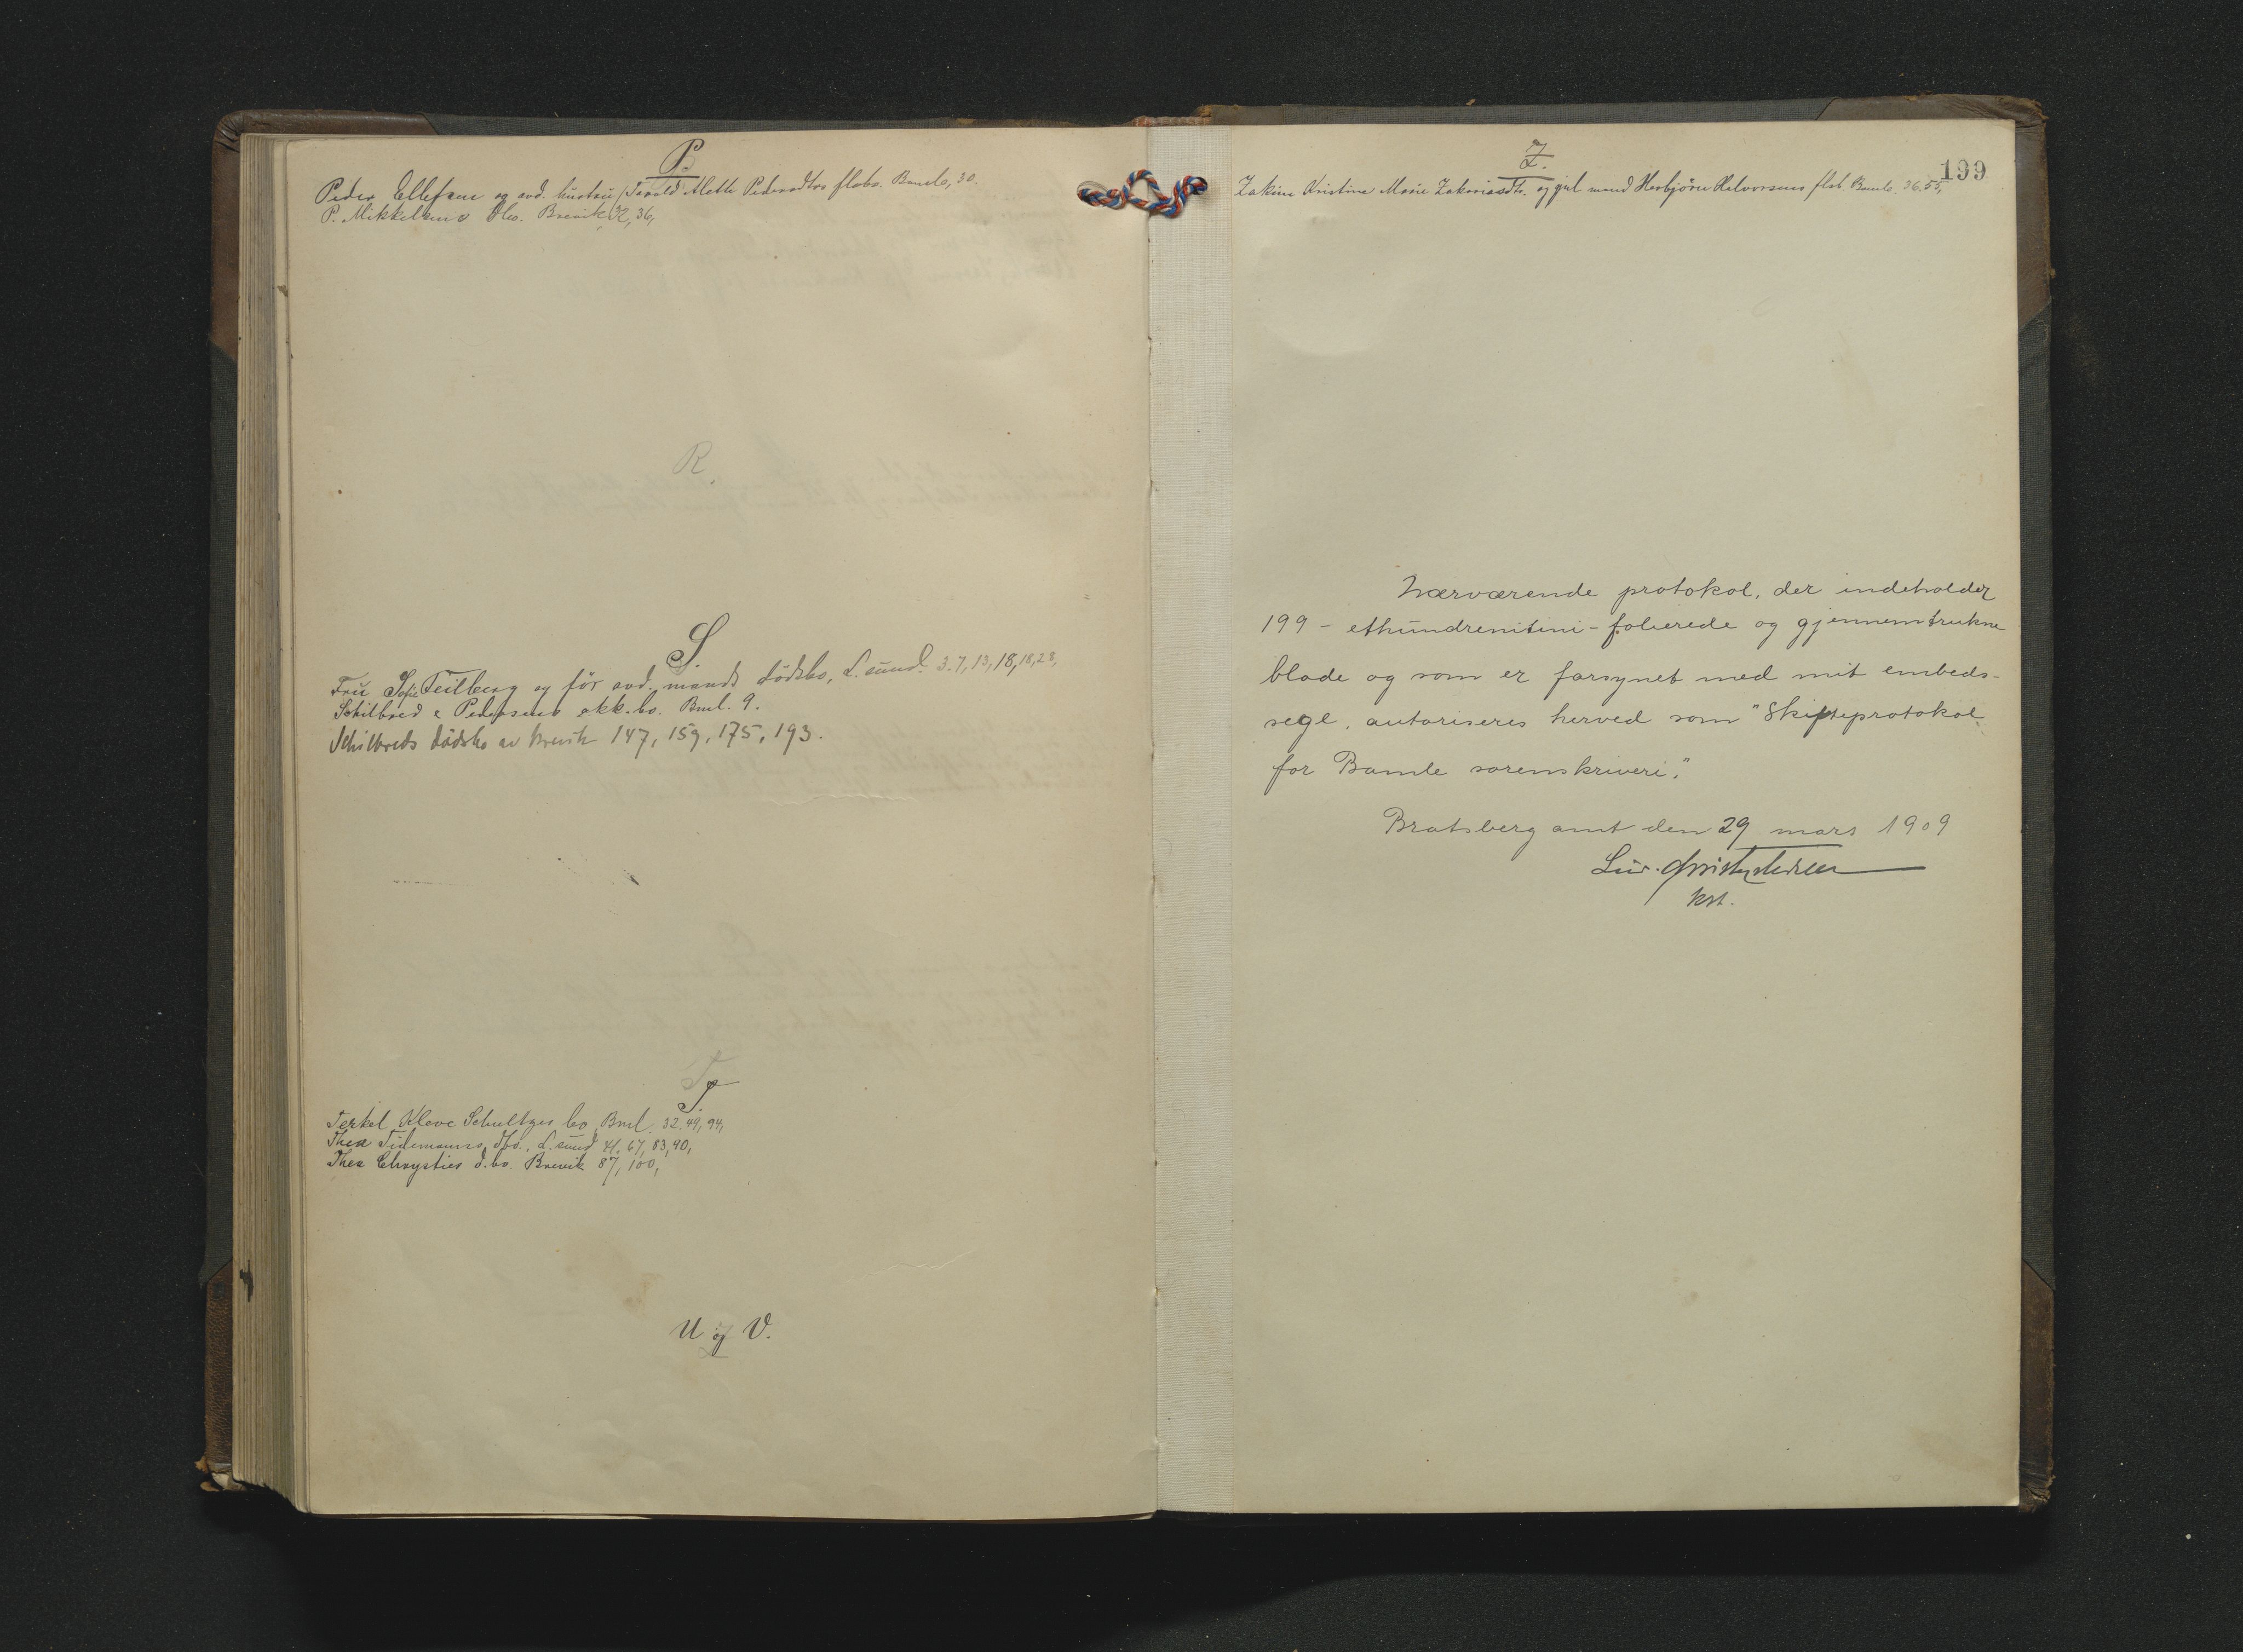 P.
Peder Ellefsen og avd. hustru Mette Pedersdtrs flsbo. Bamle, 30.
P. Mikkelsens Bo. Brevik, 32, 36,
R.
S.
Fru Sofie Feilberg og før avd. mands dødsbo, L.sund. 3. 7, 13, 18, 18, 28,
Schilbred & Pedersens akk. bo. Bml. 9.
Schilbreds dødsbo av Brevik 147, 159, 175, 193.
T.
Terkel Kleve Schultzes bo Bml. 32. 49, 94,
Thea Tidemanns dbo., L.sund 41, 67, 83, 40,
Thea Chrysties d.bo. Brevik 87, 100,
U og V.
Z.
199
Zakine Kristine Marie Zakariasdtr. og gjel. mand Herbjørn Halvorsens flsb Bamle. 36. 55,
Nærværende protokol, der indeholder
199 - ethundrenitini - folierede og gjennemtrukne
blade og som er forsynet med mit embeds-
segl, autoriseres herved som "Skifteprotokol
for Bamle sorenskriveri."
Bratsberg amt den 29 mars 1909
kst.